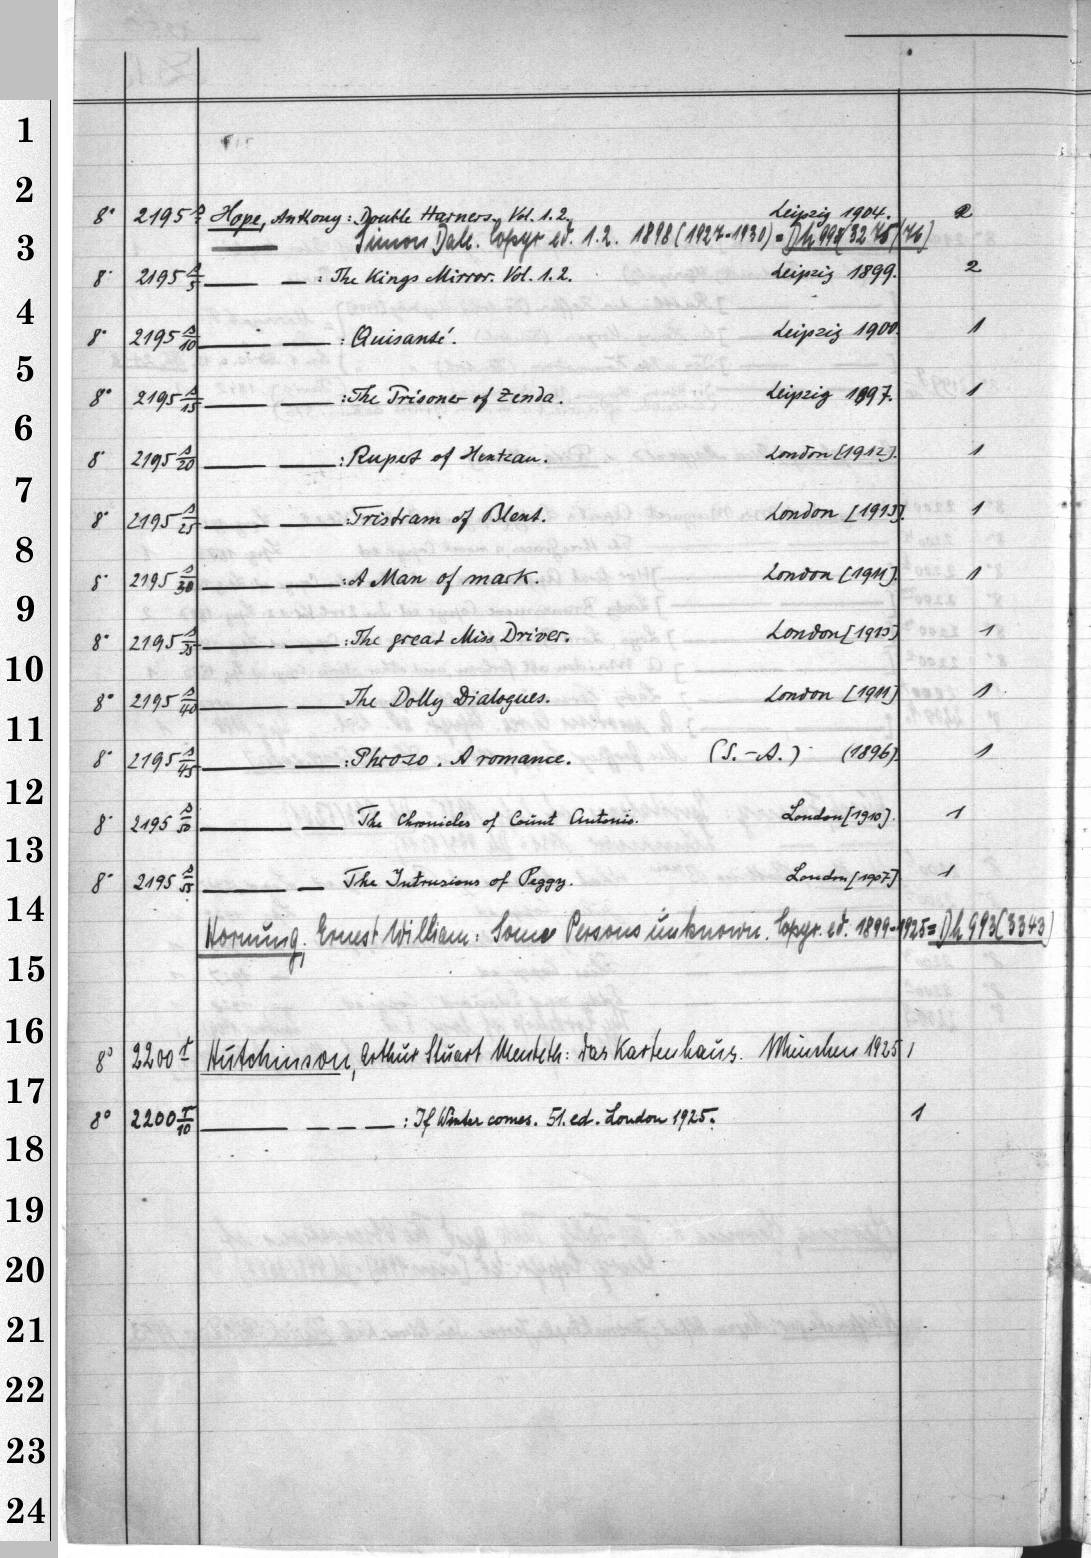 1
2
8° 2195 s Hope, Anthony: Double Harness. Vol. 1.2. Leipzig 1904. 2
3
Simon Dale. Copyr. ed. 1.2. 1898 (1927-1930) = Dh 993(3275/76)
8° 2195 s/5 — — : The Kings Mirror. Vol. 1.2. Leipzig 1899. 2
4
8° 2195 s/10 — — : Quisanté. Leipzig 1900. 1
5
8° 2195 s/15 — — : The Prisoner of Zenda. Leipzig 1897. 1
6
8° 2195 s/20 — — : Rupert of Hentzau. London [1912]. 1
7
8° 2195 s/25 — — : Tristram of Blent. London [1913]. 1
8
8° 2195 s/30 — — : A Man of mark. London [1911]. 1
9
8° 2195 s/35 — — : The great Miss Driver. London [1913] 1
10
8° 2195 s/40 — — The Dolly Dialogues. London [1911] 1
11
8° 2195 s/45 — — : Phroso. A romance. (S.-A.) (1896). 1
12
8° 2195 s/50 — — The Chronicles of Count Antonio. London [1910]. 1
13
8° 2195 s/55 — — The Intrusions of Peggy. London [1907] 1
14
Hornung, Ernest William: Some Persons unknown. Copyr. ed. 1899-1925 = Dh 993(3343)
15
16
8° 2200 t Hutchinson, Arthur Stuart Menteth: Das Kartenhaus. München 1925 1
17
8° 2200 t/10 — — — — : If Winter comes. 51. ed. London 1925. 1
18
19
20
21
22
23
24